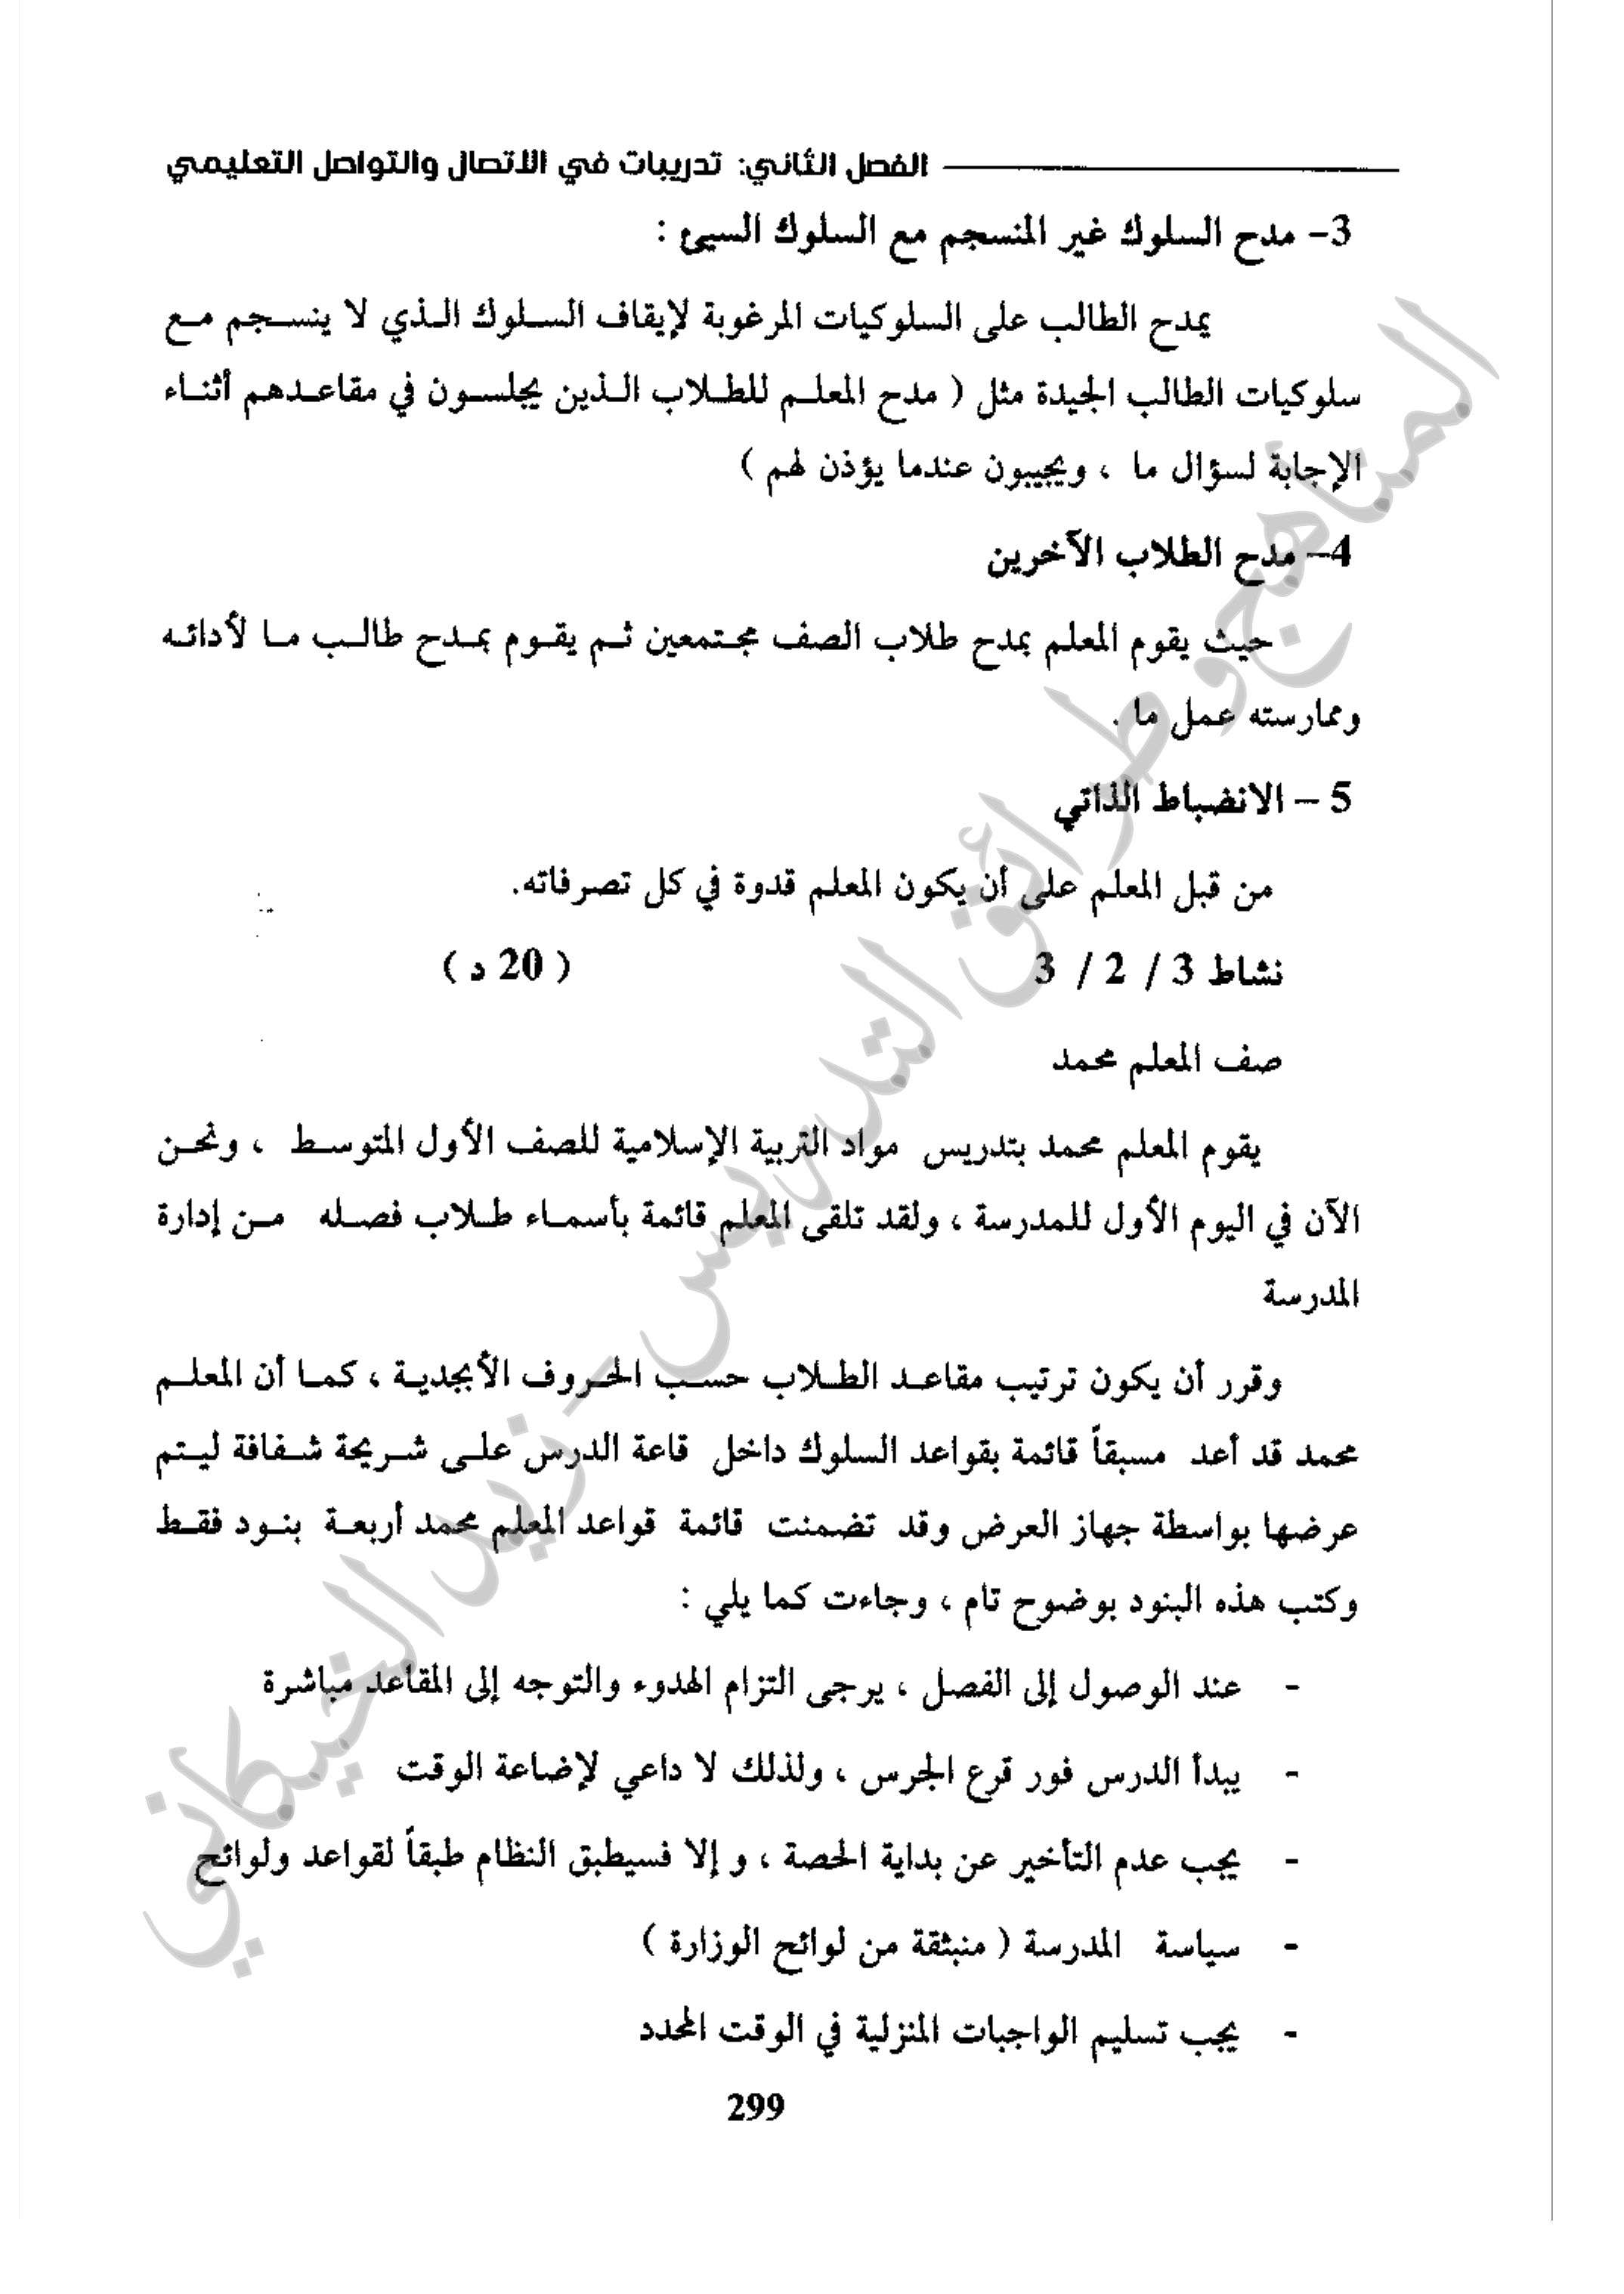 الفصل الثاني: تدريبات في الاتصال والتواصل التعليمي
3- مدح السلوك غير المنسجم مع السلوك السيئ :
يمدح الطالب على السلوكيات المرغوبة لإيقاف السلوك الذي لا ينسجم مع
سلوكيات الطالب الجيدة مثل ( مدح المعلم للطلاب الذين يجلسون في مقاعدهم أثناء
الإجابة لسؤال ما ، ويجيبون عندما يؤذن لهم )
4- مدح الطلاب الآخرين
حيث يقوم المعلم بمدح طلاب الصف مجتمعين ثم يقوم بمدح طالب ما لأدائه
وممارسته عمل ما .
5 – الانضباط الذاتي
من قبل المعلم على أن يكون المعلم قدوة في كل تصرفاته.
نشاط 3 / 2 / 3 ( 20 د )
صف المعلم محمد
يقوم المعلم محمد بتدريس مواد التربية الإسلامية للصف الأول المتوسط ، ونحن
الآن في اليوم الأول للمدرسة ، ولقد تلقى المعلم قائمة بأسماء طلاب فصله من إدارة
المدرسة
وقرر أن يكون ترتيب مقاعد الطلاب حسب الحروف الأبجدية ، كما أن المعلم
محمد قد أعد مسبقاً قائمة بقواعد السلوك داخل قاعة الدرس على شريحة شفافة ليتم
عرضها بواسطة جهاز العرض وقد تضمنت قائمة قواعد المعلم محمد أربعة بنود فقط
وكتب هذه البنود بوضوح تام ، وجاءت كما يلي :
- عند الوصول إلى الفصل ، يرجى التزام الهدوء والتوجه إلى المقاعد مباشرة
- يبدأ الدرس فور قرع الجرس ، ولذلك لا داعي لإضاعة الوقت
- يجب عدم التأخير عن بداية الحصة ، و إلا فسيطبق النظام طبقاً لقواعد ولوائح
- سياسة المدرسة ( منبثقة من لوائح الوزارة )
- يجب تسليم الواجبات المنزلية في الوقت المحدد
299
المناهج وطرائق التدريس - زيد الخيكاني